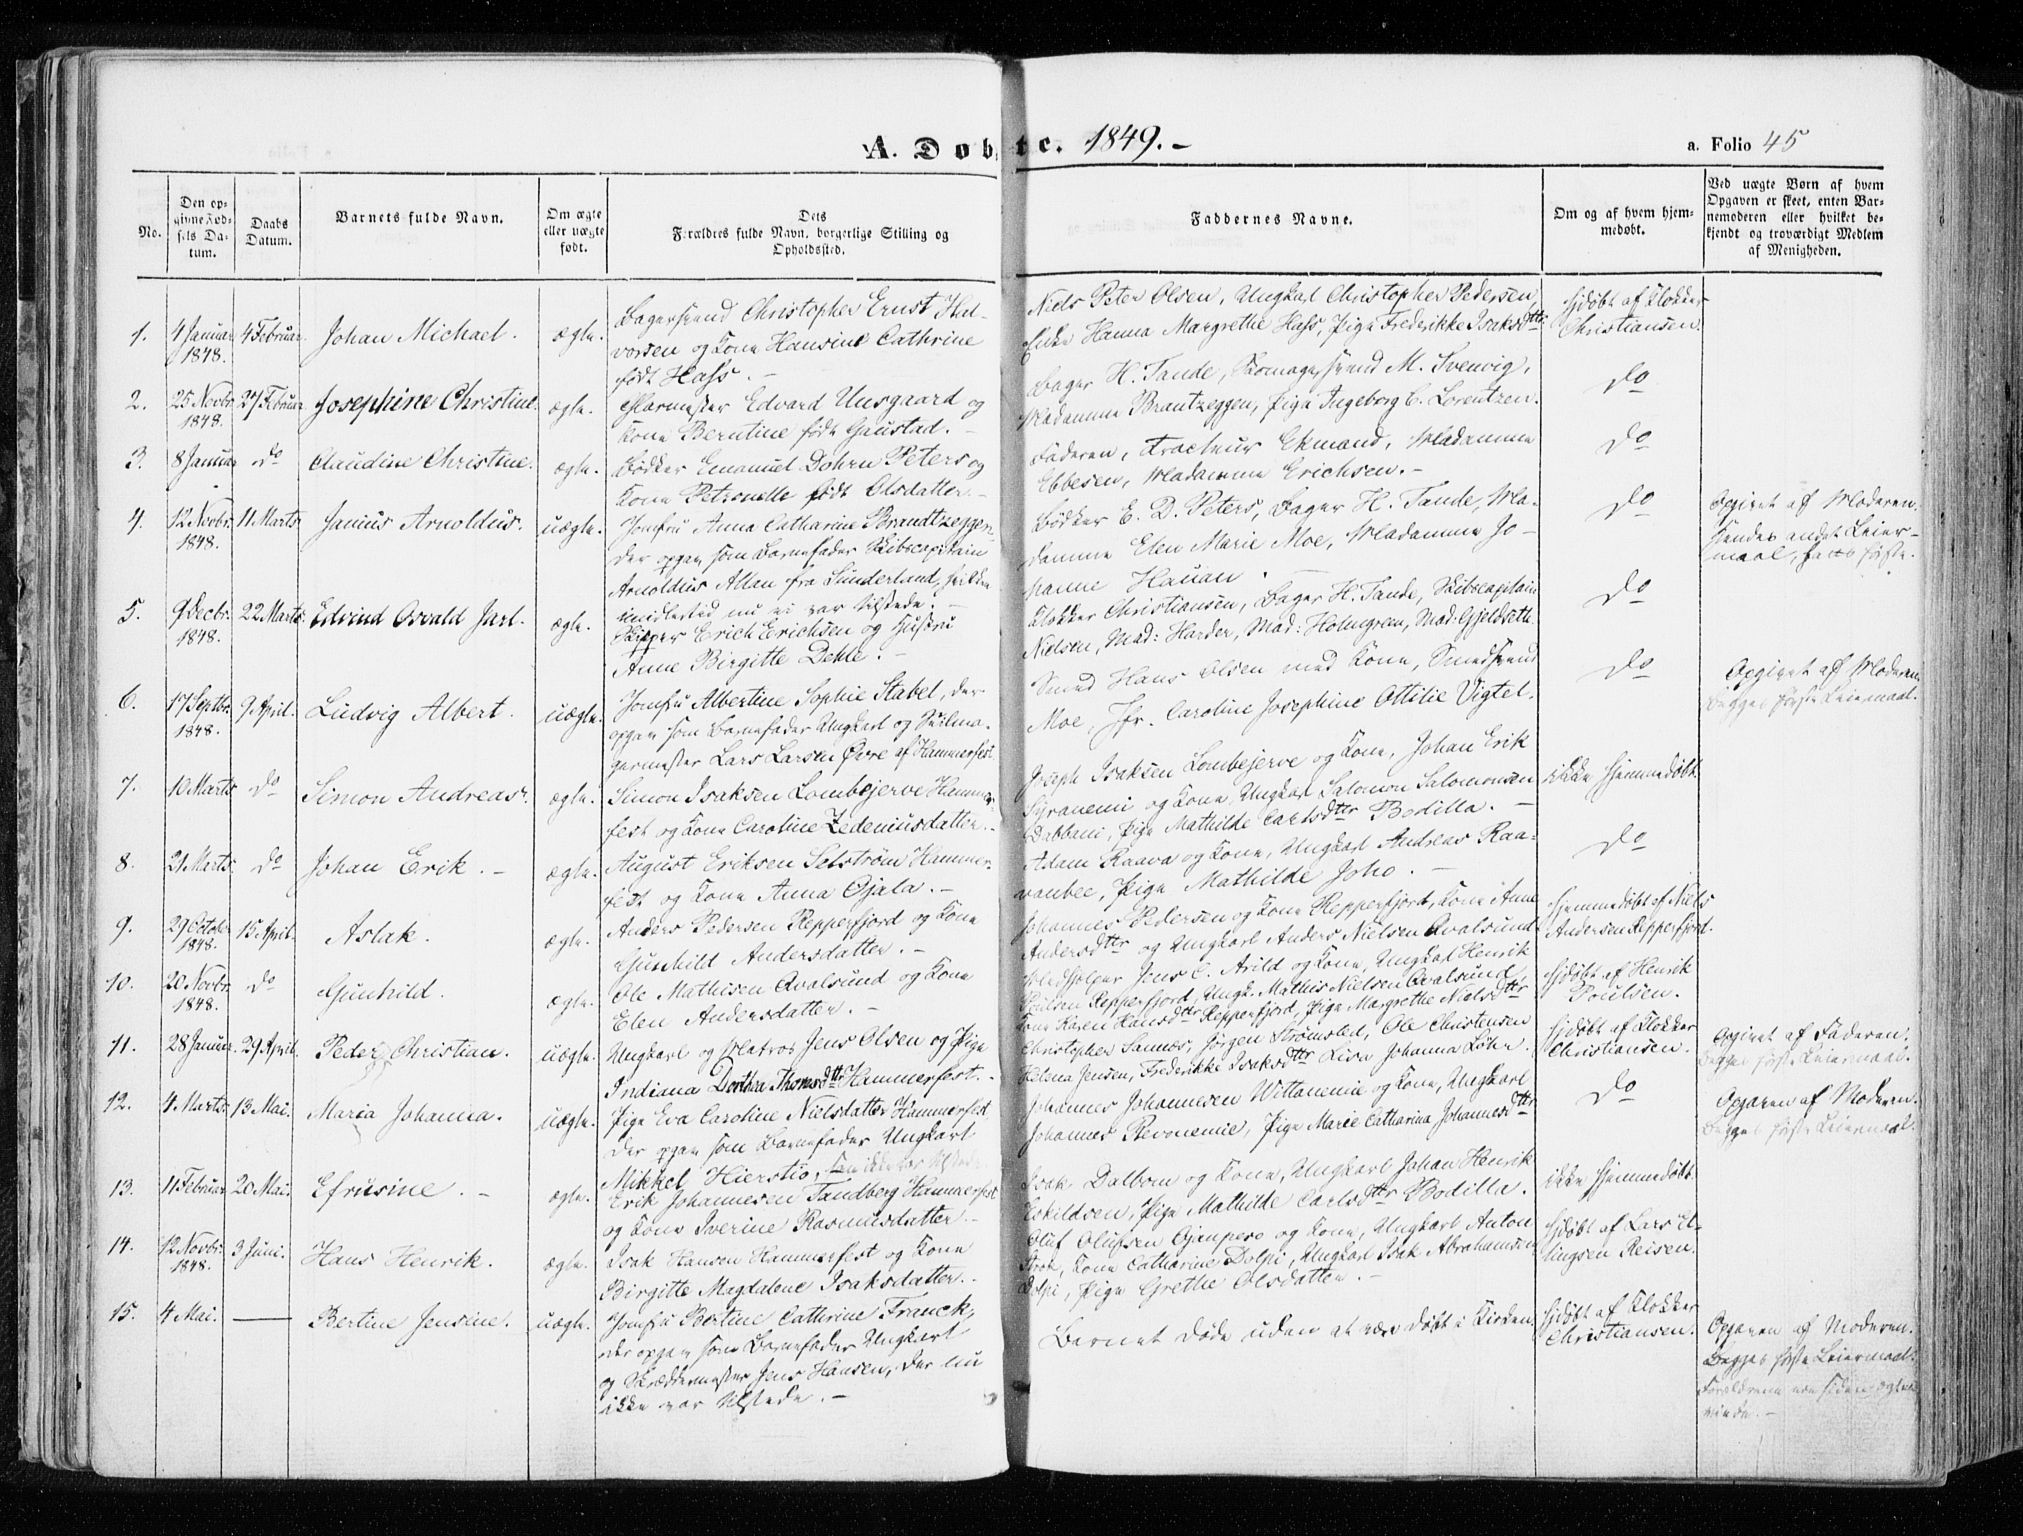 A. Døbte. 1849.-
a. Folio 45
No.
Den opgivne Fødsels Datum.
Daabs Datum.
Barnets fulde Navn.
Om ægte eller uægte født.
Dets Forældres fulde Navn, borgerlige Stilling og Opholdssted.
Faddernes Navne.
Om og af hvem hjemmedøbt.
Ved uægte Børn af hvem Opgaven er skeet, enten Barnemoderen eller hvilket bekjendt og troværdigt Medlem af Menigheden.
1. 4 Januar 1848. 4 Februar Johan Michael. ægte.
Bagersvend Christopher Ernst Hal-
vorsen og Kone Hansine Cathrine
født Hass. -
Niels Peter Olsen, Ungkarl Christopher Pedersen,
Enke Hanna Margrethe Hass, Pige Frederikke Isaksdtr
hjdøbt af Klokker
Christiansen.
2. 25 Novbr. 1848. 27 Februar Josephine Christine. ægte.
Edvard Unsgaard og
Kone Berntine født Gaustad. -
Bager H. Tande, Skomagersvend M. Svenvig,
Madamme Brantzeggen, Pige Ingeborg C. Lorentzen.
do
3. 8 Januar do Claudine Christine. ægte.
Bødker Emanuel Dohrn Peters og
Kone Petronelle født Olsdatter -
Faderen, Tracteur Ekmand, Madamme
Ebbesen, Madamme Erichsen. -
do
4. 12 Novbr. 1848. 11 Marts Janius Arnoldus. uægte.
Jomfru Anna Catharine Brandtzeggen
der opgav som Barnefader Skibscapitain
Arnoldus Allen fra Sunderland, hvilken
imidlertid nu ei var tilstede. -
Bødker E. D. Peters, Bager H. Tande, Ma-
damme Elen Marie Moe, Madamme Jo-
hanne Hauan.
do
Opgivet af Moderen.
Hendes andet Leier-
maal, hans første.
5. 9 Decbr. 1848. 22 Marts Edvind Osvald Juel. ægte.
Skipper Erich Erichsen og Hustru
Anne Birgitte Dehle. -
Klokker Christiansen, Bager H. Tande, Skibscapitain
Nielsen, Mad: Harder, Mad: Holmgreen, Mad: Gjeldseth
do
6. 17 Septbr. 1848. 9 April. Ludvig Albert. uægte.
Jomfru Albertine Sophie Stabel, der
opgav som Barnefader Ungkarl og Seilma-
germester Lars Larsen Øvre af Hammerfest
Smed Hans Olsen med Kone, Smedsvend
Moe, Jfr. Caroline Josephine Ottilie Vigtel.
do
Opgivet af Moderen.
Begges første Leiermaal.
7. 10 Marts do Simon Andreas. ægte.
Simon Isaksen Lombojerve Hammer-
fest og Kone Caroline Zedeniusdatter. -
Joseph Isaksen Lombojerve og Kone, Johan Erik
Syvanemi og Kone, Ungkarl Salomon Salomonsen
Dabbani, Pige Mathilde Carlsdtr Bodilla. -
ikke hjemmedøbt.
8. 21 Marts do Johan Erik. - ægte.
August Eriksen Selstrøm Hammer-
fest og Kone Anna Ojala. -
Adam Raava og Kone, Ungkarl Andreas Raa-
vanbee, Pige Mathilde Joho. -
do
9. 29 October 1848. 15 April. Aslak. ægte.
Anders Pedersen Repperfjord og Kone
Gunhild Andersdatter. -
Johannes Pedersen og Kone Repperfjord, Kone Anne
Andersdtr og Ungkarl Anders Nielsen Qvalsund
hjemmedøbt af Niels
Andersen Repperfjord.
10. 20 Novbr. 1848. do Gunhild. ægte.
Ole Mathisen Qvalsund og Kone
Elen Andersdatter. -
Medhjelper Jens C. Arild og Kone, Ungkarl Henrik
Poulsen Repperfjord, Ungk. Mathis Nielsen Qvalsund,
Kone Karen Hansdtr Repperfjord, Pige Margrethe Nielsdtr
hjdøbt af Henrik
Poulsen.
11. 28 Januar. 29 April. Peder Christian. uægte.
Ungkarl og Matros Jens Olsen og Pige
Indiana Dorthea Thomasdtr Hammerfest. -
Christopher Sannes, Jørgen Strømsted, Ole Christensen
Helena Jensen, Frederikke Isaksdtr Lisa Johanna Løhr.
hjdøbt af Klokker
Christiansen.
Opgivet af Faderen.
Begges første Leiermaal.
12. 4 Marts. 13 Mai. Maria Johanna. uægte.
Pige Eva Caroline Nielsdatter Hammerfest
der opgav som Barnefader Ungkarl
Mikkel Hierstio, som ikke var tilstede
Johannes Johannesen Wittanemie og Kone, Ungkarl
Johannes Revonemie, Pige Marie Catharina Johannesdtr
do
Opgaven af Moderen.
Begges første Leiermaal.
13. 11 Februar 20 Mai. Efrusine. - ægte.
Erik Johannesen Tandberg Hammerfest
og Kone Iverine Rasmusdatter. -
Isak Dalbom og Kone, Ungkarl Johan Henrik
Eskildsen, Pige Mathilde Carlsdtr Bodilla.
ikke hjemmedøbt.
14. 12 Novbr. 1848. 3 Juni. Hans Henrik. ægte.
Isak Hanson Hammerfest og Kone
Birgitte Magdalene Isaksdatter. -
Oluf Olufsen Gjenpero og Kone, Ungkarl Anton
Strok, Kone Catharine Dolpi, Ungkarl Isak Abrahamsen
Dolpi, Pige Grethe Olsdatter. -
hjdøbt af Lars El-
lingsen Reisen.
15. 4 Mai. — Bertine Jensine. uægte.
Jomfru Bertine Cathrine Franck,
der opgav som Barnefader Ungkarl
og Skræddermester Jens Hansen, der nu
ikke var tilstede. -
Barnet døde uden at være døbt i Kirken.
hjdøbt af Klokker
Christiansen.
Opgaven af Moderen.
Begges første Leiermaal.
Forældrene ere siden ægte-
viede. -